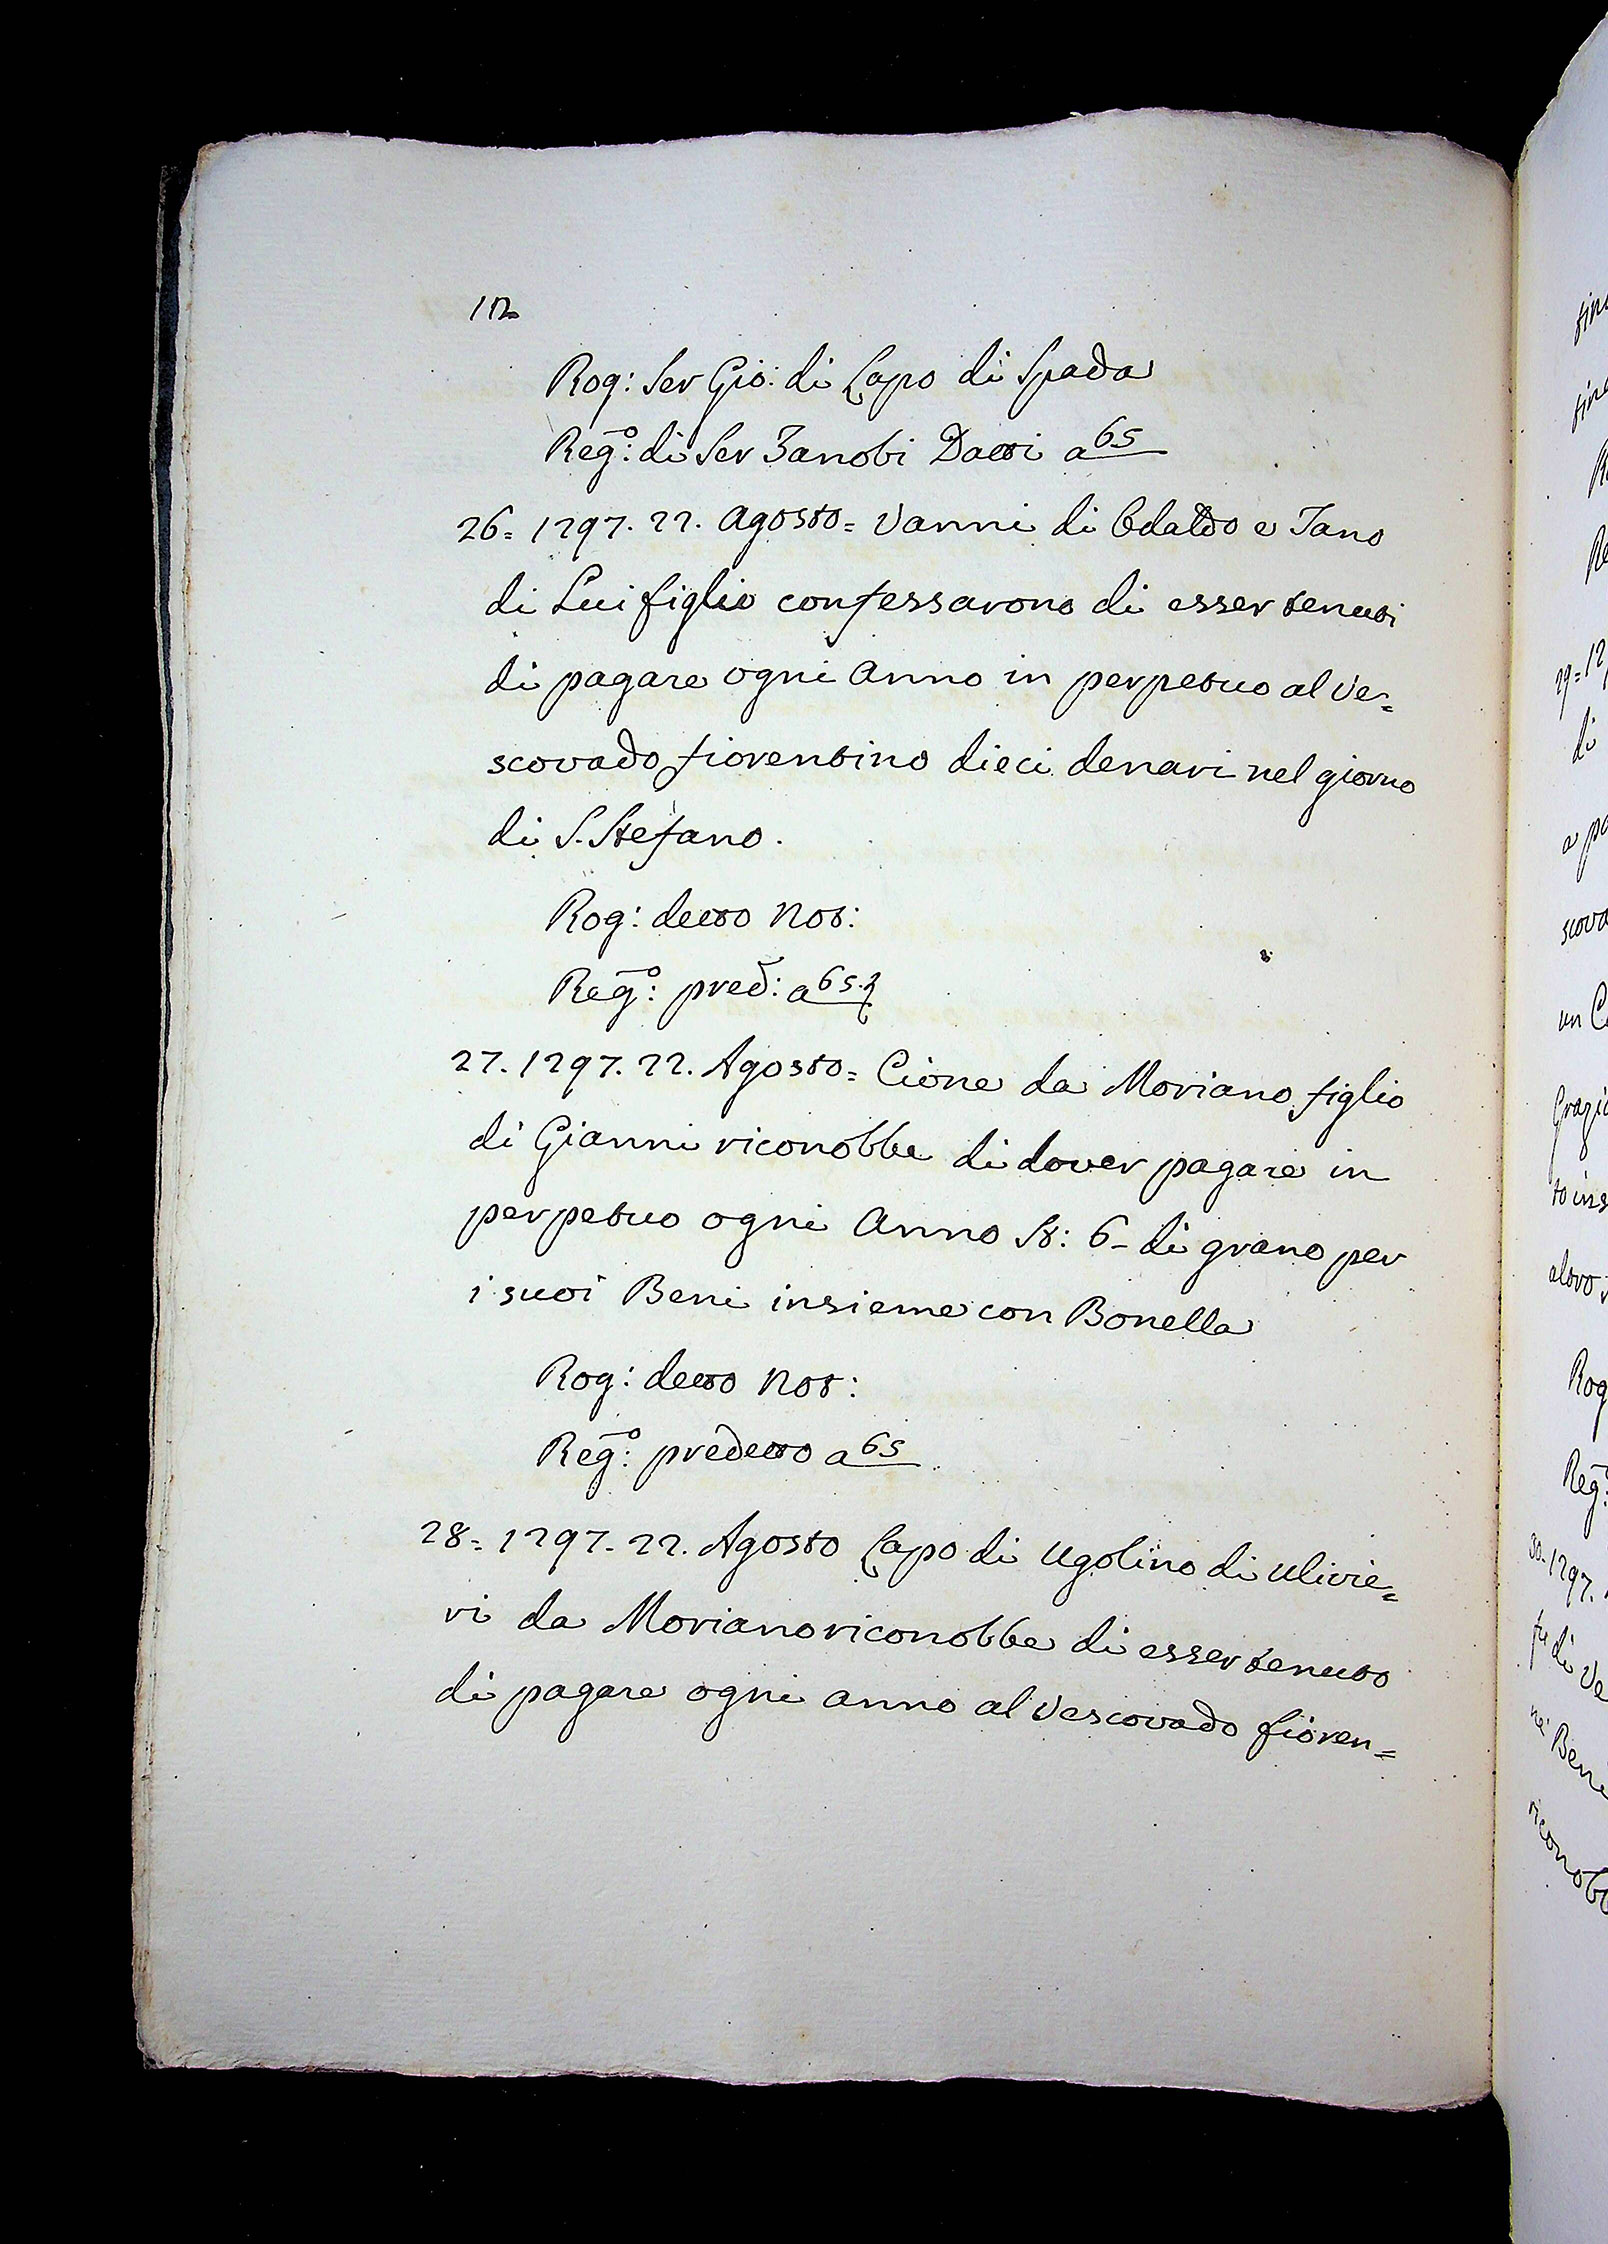 112
Rog: Ser Gio: di Lapo di Spada
Reg:º di Ser Zanobi Datti a 65
26= 1297. 22. Agosto= Vanni di Odaldo e Tano
di Lui figlio confessarono di esser tenuti
di pagare ogni Anno in perpetuo al Ve=
scovado fiorentino dieci denari nel giorno
di S. Stefano.
Rog: detto Not:
Reg:º pred: a 65.
27. 1297. 22. Agosto= Cione da Moriano figlio
di Gianni riconobbe di dover pagare in
perpetuo ogni Anno St: 6- di grano per
i suoi Beni insieme con Bonella
Rog: detto Not:
Reg:º predetto a 65
28= 1297- 22. Agosto Lapo di Ugolino di Ulivie=
ri da Moriano riconobbe di esser tenuto
di pagare ogni anno al Vescovado fioren=